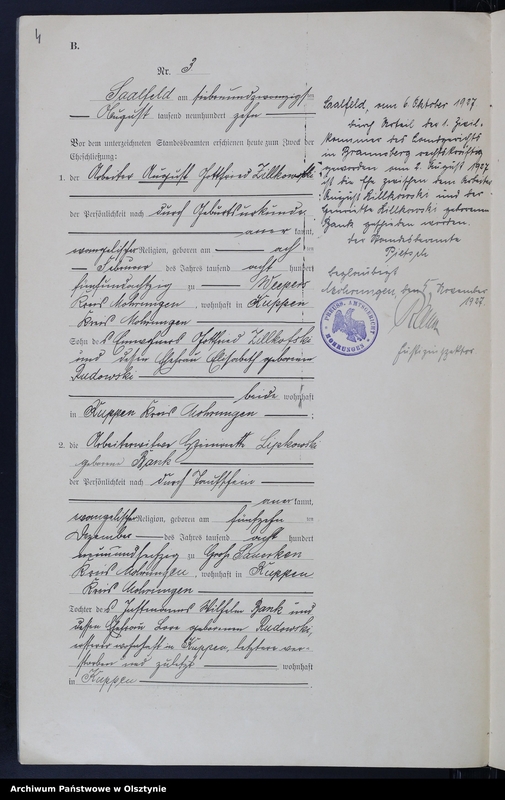 4
B.
Nr. 3
Saalfeld am siebenundzwanzigsten
August tausend neunhundert zehn
Vor dem unterzeichneten Standesbeamten erschienen heute zum Zweck der
Eheschließung:
1. der Arbeiter August Gottfried Zillkowski
der Persönlichkeit nach durch Geburtsurkunde
anerkannt,
evangelischer Religion, geboren am achten
Februar des Jahres tausend acht hundert
fünfundachtzig zu Weepers
Kreis Mohrungen, wohnhaft in Kuppen
Kreis Mohrungen
Sohn des Gottfried Zillkofski
und dessen Ehefrau Elisabeth geborenen
Rudowski
beide wohnhaft
in Kuppen Kreis Mohrungen;
2. die Arbeiterwitwe Lipkowski
geborene Bank
der Persönlichkeit nach durch Taufschein
anerkannt,
evangelischer Religion, geboren am fünfzehn ten
Dezember des Jahres tausend acht hundert
zu Groß Sauerken
Kreis Mohrungen, wohnhaft in Kuppen
Kreis Mohrungen
Tochter des Instmanns Wilhelm Bank und
dessen Ehefrau geborenen Rudowski,
ersterer wohnhaft in Kuppen, letztere ver-
storben und zuletzt wohnhaft
in Kuppen
Saalfeld, am 6. Oktober 1927
Durch Urteil der 1. Zivil-
kammer des Landgerichts
in Braunsberg rechtskräftig
geworden am 2. August 1927
ist die Ehe zwischen dem Arbeiter
August Zillkowski und der
Zillkowski geborene
Bank geschieden worden.
Der Standesbeamte
Beglaubigt
Mohrungen, den 5. November
1927.
Justizinspektor
PREUSS. AMTSGERICHT
MOHRUNGEN
Archiwum Państwowe w Olsztynie